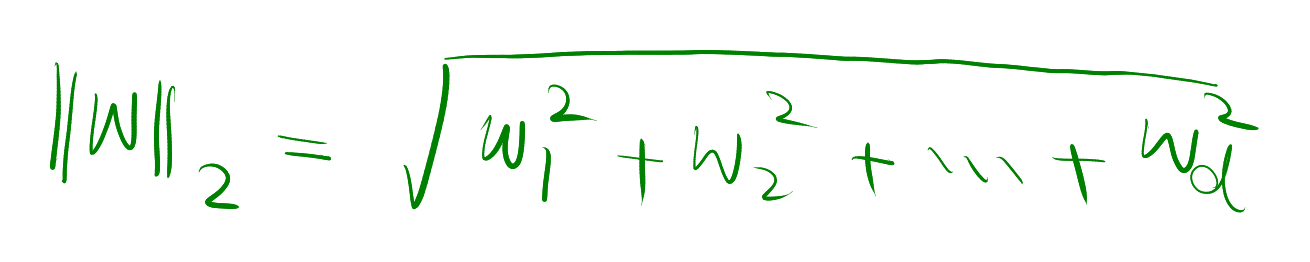 ‖w‖₂ = √(w₁² + w₂² + ⋯ + w_d²)